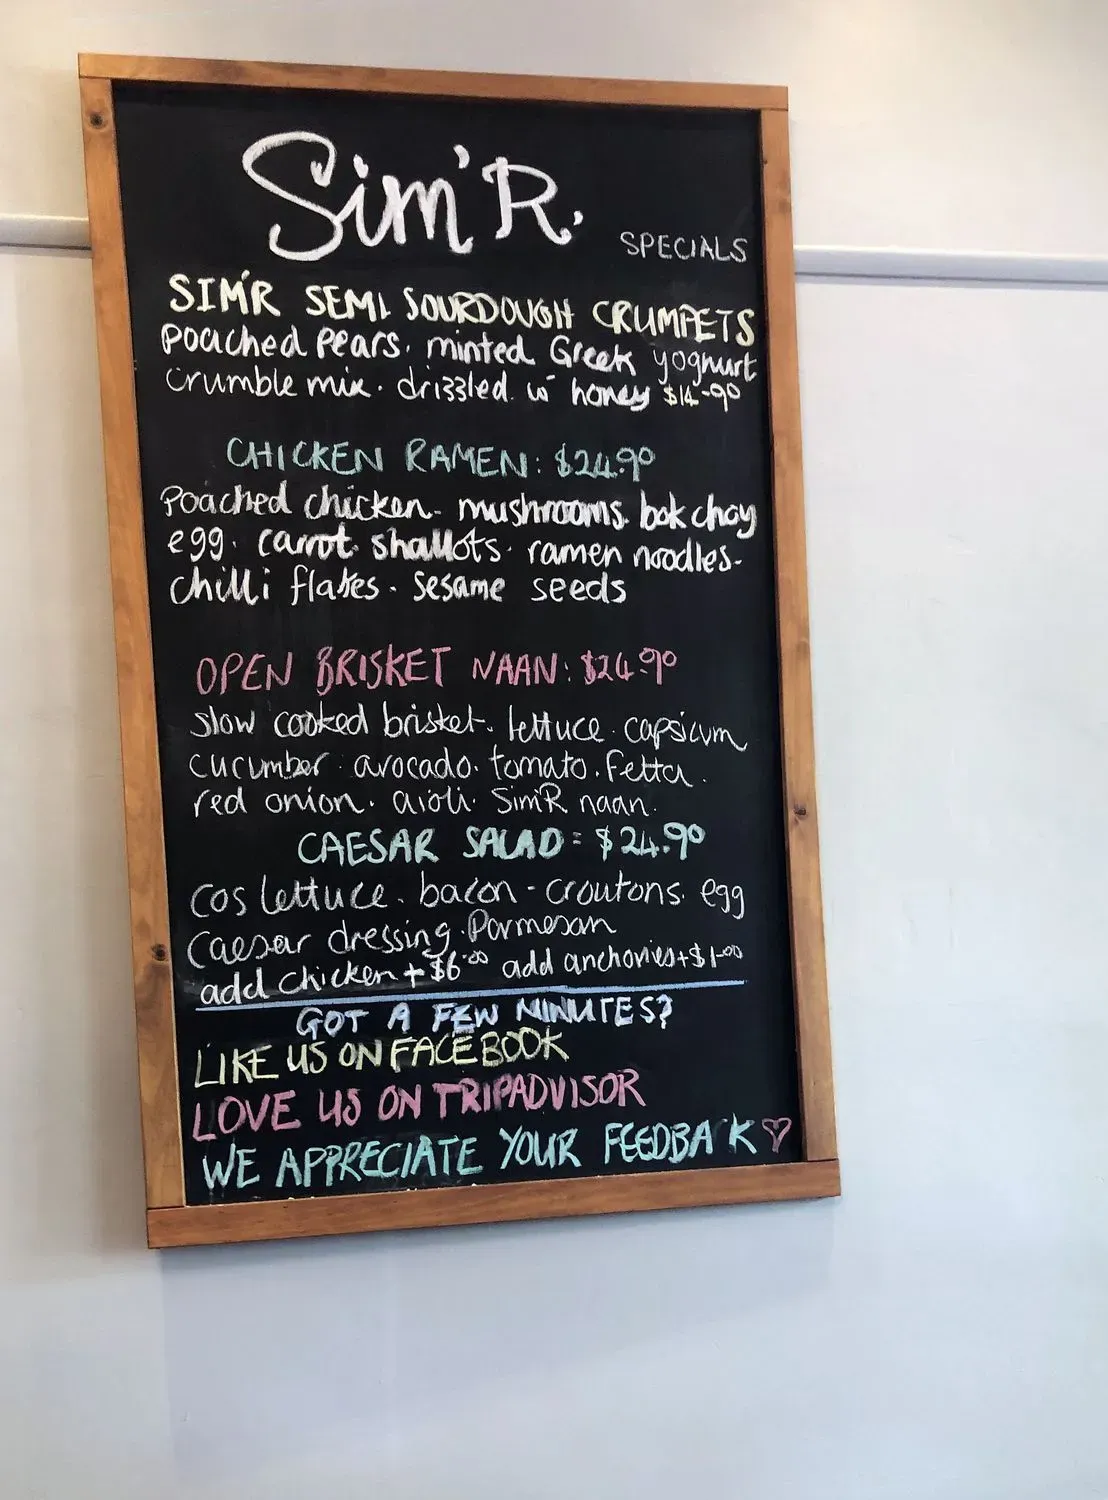 Sim'R.
SPECIALS
SIM'R SEMI SOURDOUGH CRUMPETS
Poached Pears. minted Greek yoghurt
Crumble mix. drizzled. w honey $14-90
CHICKEN RAMEN: $24.90
Poached chicken- mushrooms. bok choy
egg. carrot. shallots. ramen noodles-
chilli flakes. sesame seeds
OPEN BRISKET NAAN: $24.90
slow cooked brisket. lettuce. capsicum
cucumber. avocado. tomato. fetta.
red onion. aioli. Sim'R naan.
CAESAR SALAD= $24.90
Cos lettuce. bacon - croutons. egg
Caesar dressing. Parmesan
add chicken + $6.00 add anchovies + $1-00
GOT A FEW MINUTES?
LIKE US ON FACEBOOK
LOVE US ON TRIPADVISOR
WE APPRECIATE YOUR FEEDBA K ♡